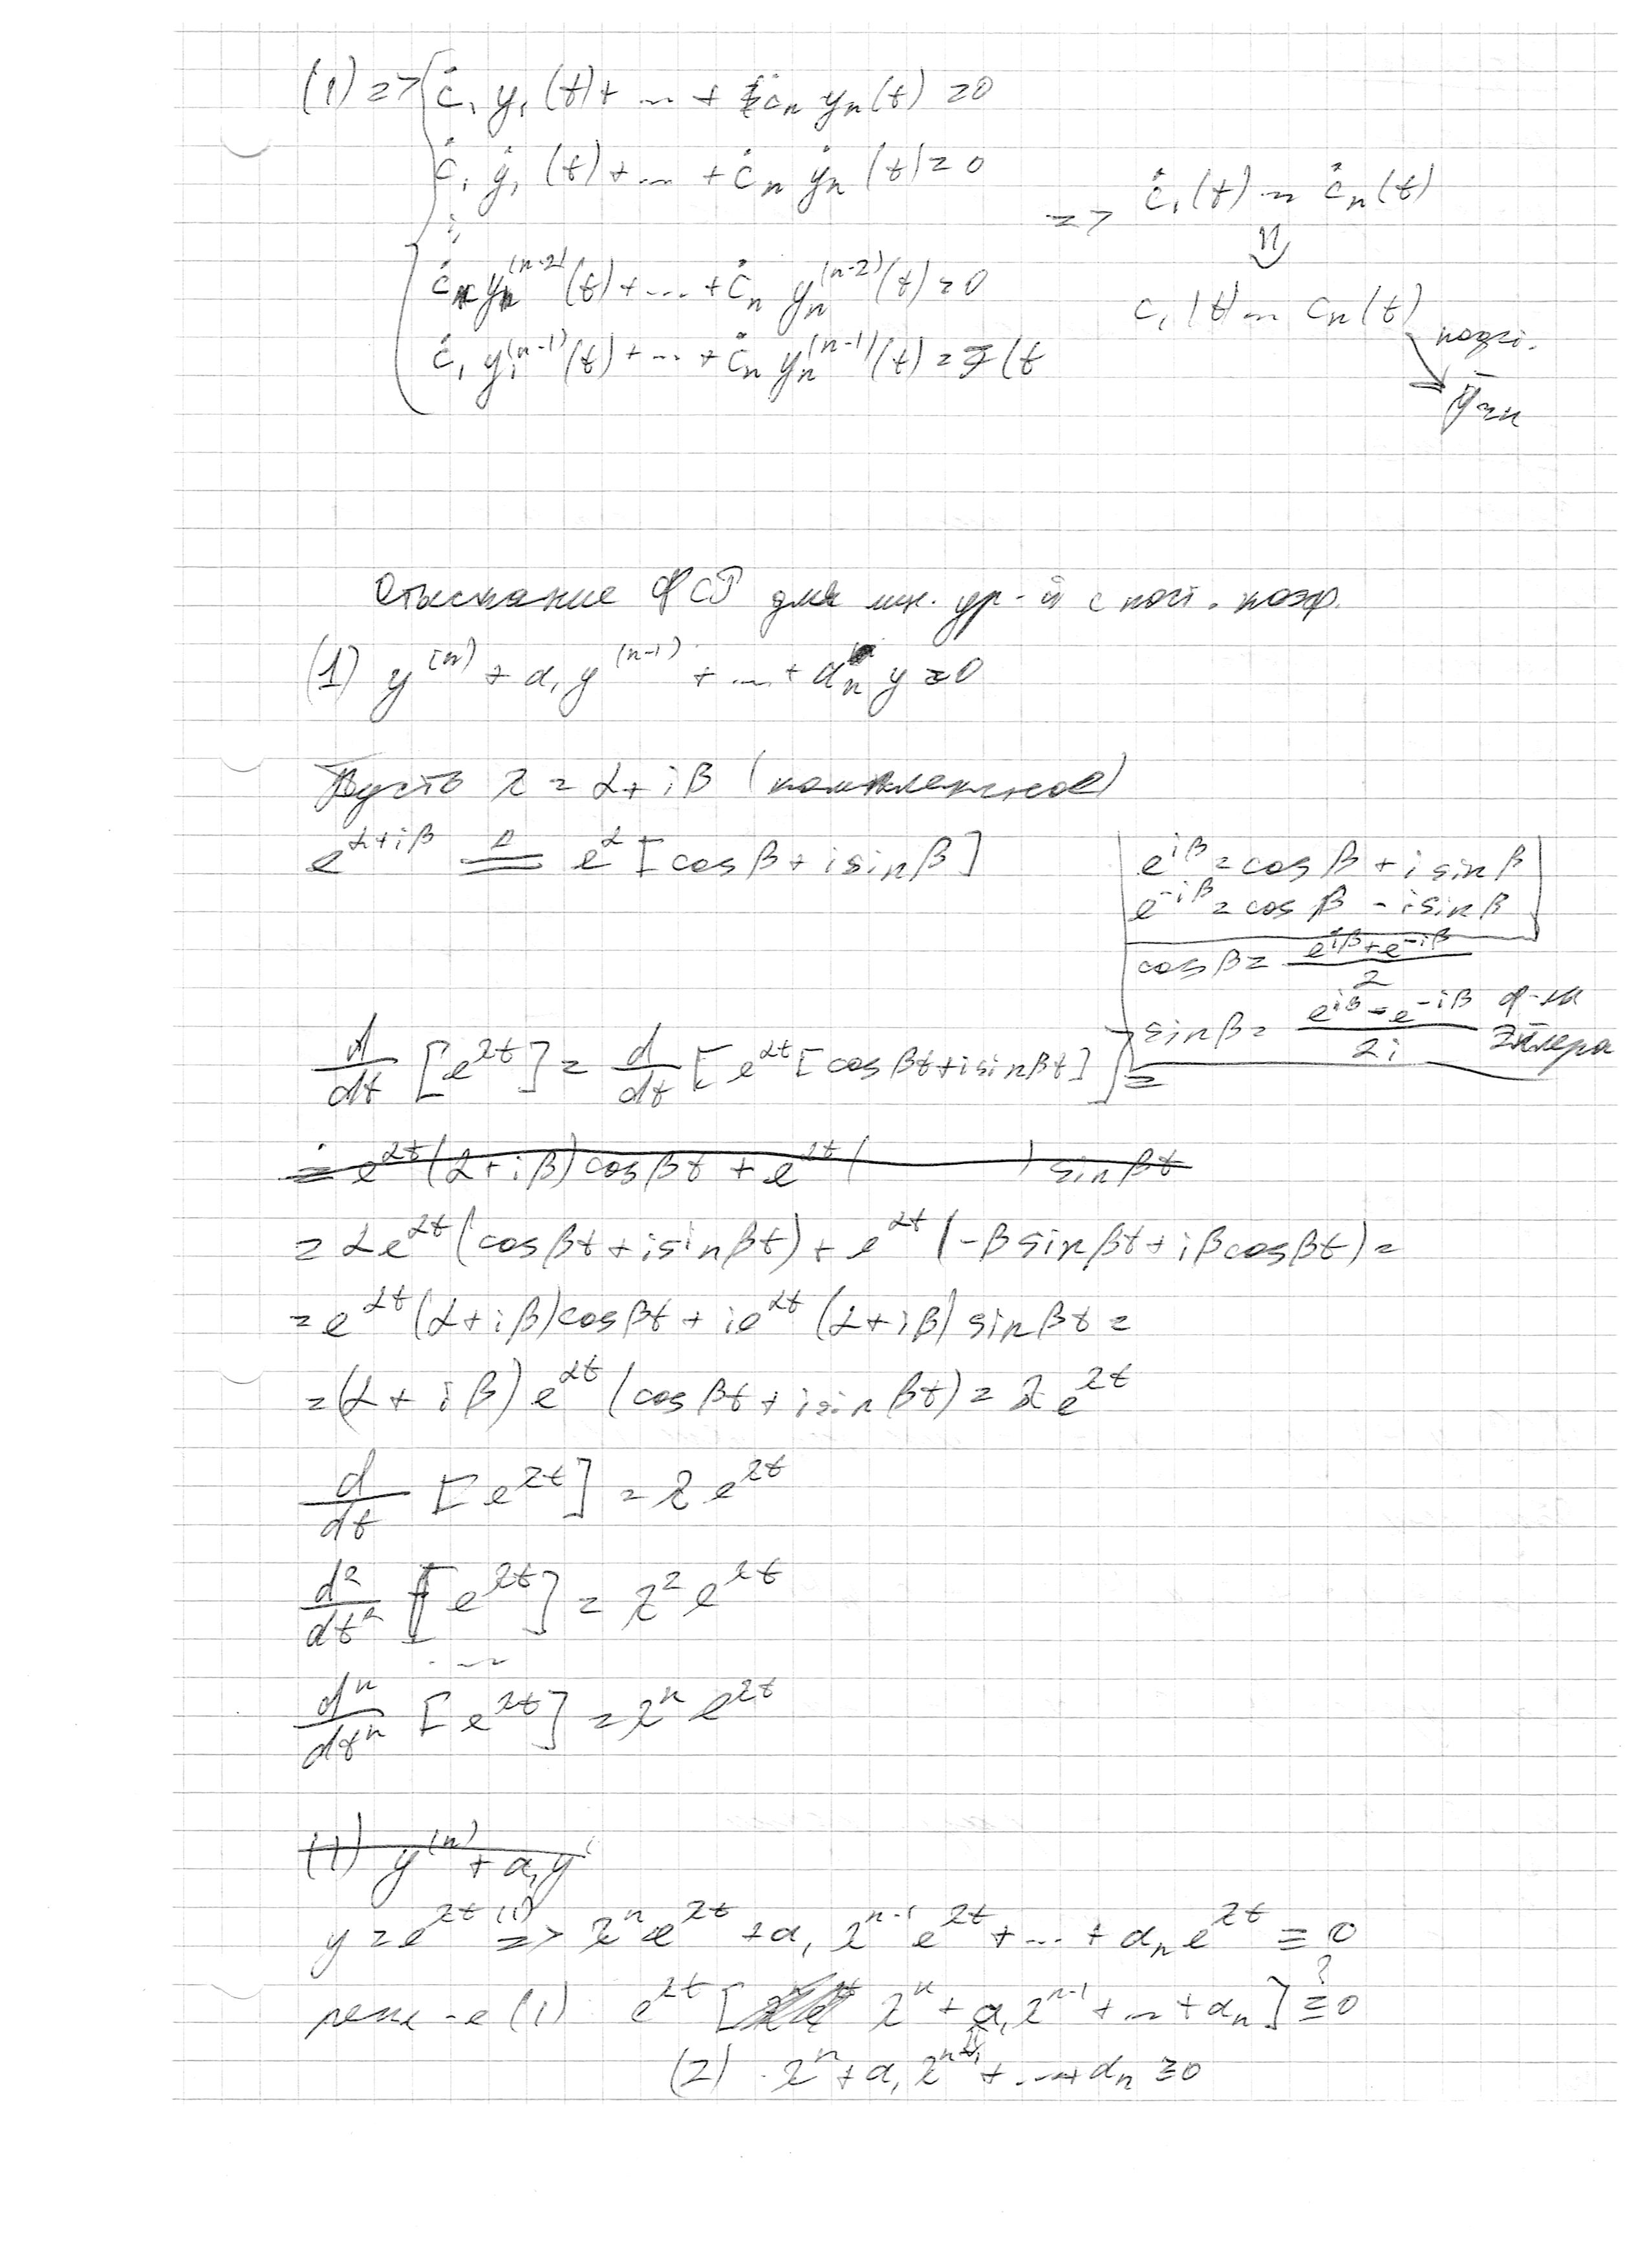 (1) => { ċ₁ y₁(t) + ... + ċₙ yₙ(t) = 0
ċ₁ ẏ₁(t) + ... + ċₙ ẏₙ(t) = 0
=> ċ₁(t) ... ċₙ(t)
⋮
ċₙ yₙ^(n-2)(t) + ... + ċₙ yₙ^(n-2)(t) = 0
c₁(t) ... cₙ(t)
ċ₁ y₁^(n-1)(t) + ... + ċₙ yₙ^(n-1)(t) = F(t
подст.
ȳчн
Отыскание ФСР для лин. ур-й с пост. коэф.
(1) y^(n) + a₁ y^(n-1) + ... + aₙ y = 0
Пусть λ = α + iβ (комплексное)
e^(α+iβ) ≝ e^α [cosβ + i sinβ]
e^(iβ) = cosβ + i sinβ
e^(-iβ) = cosβ - i sinβ
cosβ = (e^(iβ) + e^(-iβ))/2
sinβ = (e^(iβ) - e^(-iβ))/2i ф-ла Эйлера
d/dt [e^(λt)] = d/dt [e^(αt) [cosβt + i sinβt]] =
= e^(αt)(α + iβ)cosβt + e^(αt)( ) sinβt
= αe^(αt)(cosβt + i sinβt) + e^(αt)(-β sinβt + iβcosβt) =
= e^(αt)(α + iβ)cosβt + ie^(αt)(α + iβ) sinβt =
= (α + iβ) e^(αt)(cosβt + i sinβt) = λe^(λt)
d/dt [e^(λt)] = λe^(λt)
d²/dt² [e^(λt)] = λ²e^(λt)
...
dⁿ/dtⁿ [e^(λt)] = λⁿe^(λt)
(1) y^(n) + a₁y
y = e^(λt) (1) => λⁿe^(λt) + a₁λ^(n-1)e^(λt) + ... + aₙe^(λt) ≡ 0
реш-е (1) e^(λt) [λⁿ + a₁λ^(n-1) + ... + aₙ] ≡ 0 ?
(2) λⁿ + a₁λ^(n-1) + ... + aₙ = 0